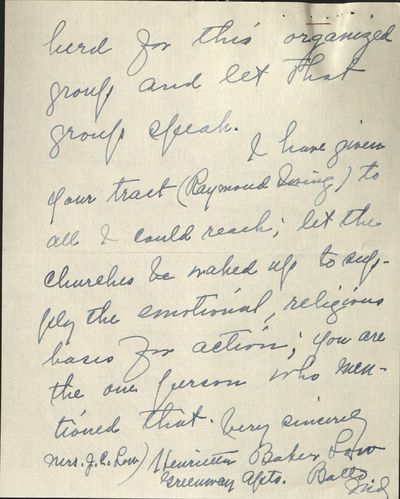 herd for this organized
group and let that
group speak.
I have given
your tract (Raymond Swing) to
all I could reach; let the
churches be waked up to sup-
ply the emotional, religious
basis for action; you are
the one person who men-
tioned that. Very sincerely
(Mrs. J. C. Low) Henrietta Baker Low
Greenway Apts. Balto
Md